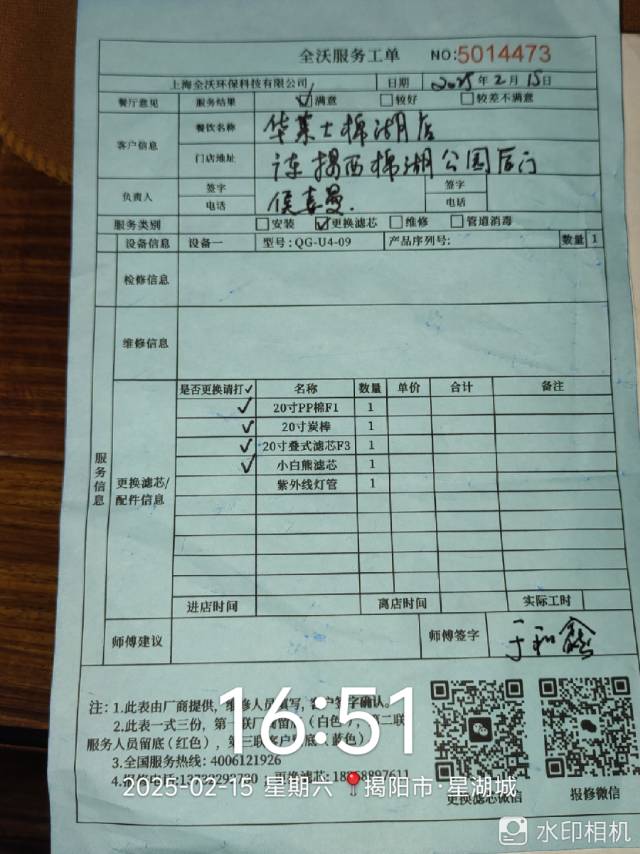 全沃服务工单 NO:5014473
上海全沃环保科技有限公司 日期 2025年2月15日
餐厅意见 服务结果 ☑满意 □较好 □较差不满意
客户信息 餐饮名称 华莱士棉湖店
门店地址 揭西棉湖公园后门
负责人 签字 签字
电话 侯 曼 电话
服务类别 □安装 ☑更换滤芯 □维修 □管道消毒
设备信息 设备一 型号:QG-U4-09 产品序列号: 数量 1
检修信息
维修信息
服务信息
更换滤芯/配件信息
是否更换请打✓ 名称 数量 单价 合计 备注
✓ 20寸PP棉F1 1
✓ 20寸炭棒 1
✓ 20寸叠式滤芯F3 1
✓ 小白熊滤芯 1
紫外线灯管 1
进店时间 离店时间 实际工时
师傅建议 师傅签字 于和鑫
注：1.此表由厂商提供，维修人员填写，客户签字确认。
2.此表一式三份，第一联厂商留底（白色），第二联
服务人员留底（红色），第三联客户留底（蓝色）
3.全国服务热线: 4006121926
更换滤芯微信 报修微信
16:51
2025-02-15 星期六 揭阳市·星湖城
水印相机